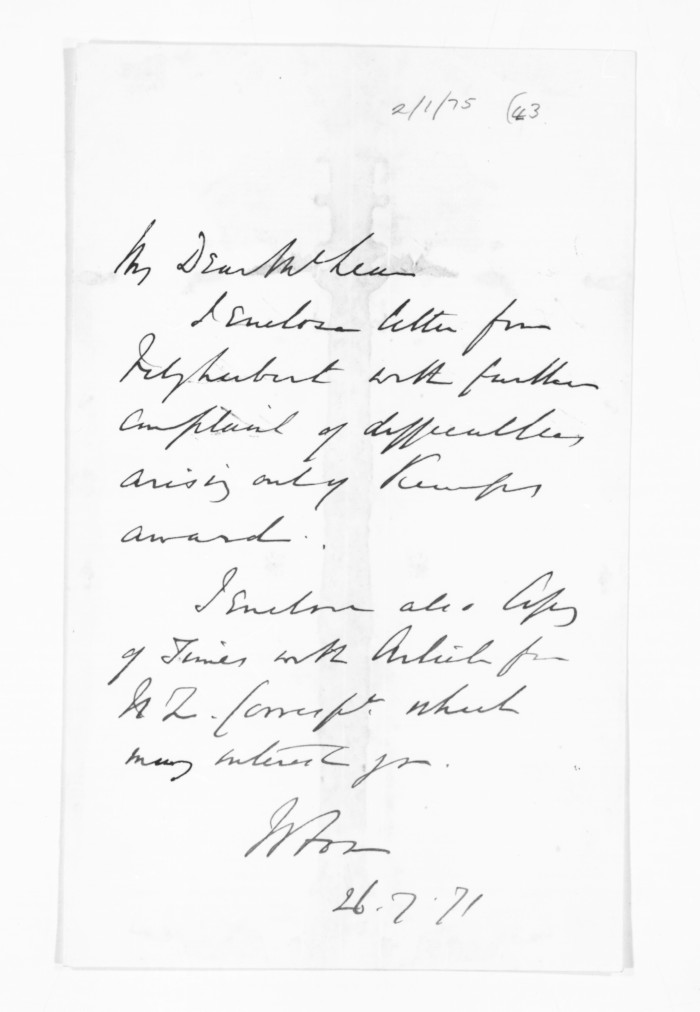 2/1/75 (43
My Dear McLean
I Enclose letter from
Fitzherbert with further
complaint of difficulties
arising out of Kemps
award.
I Enclose also Copy
of Times with Article from
N Z. Correspt. which
may interest you.
W Fox
26.7.71